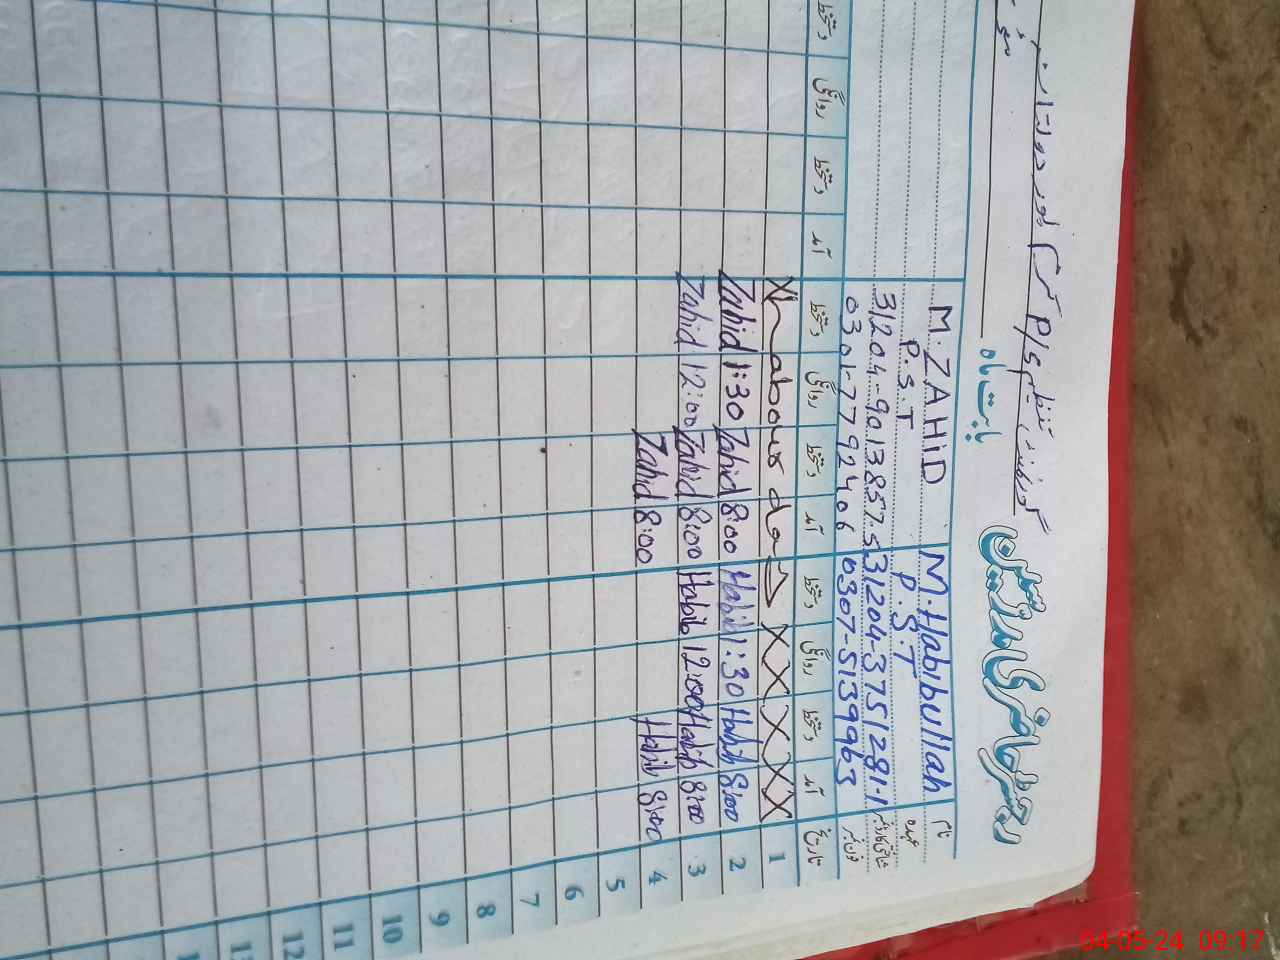 رجسٹر حاضری مدرسین
بابت ماہ
نام M. Habibullah M. ZAHID
عہدہ P.S.T P.S.T
شناختی کارڈ نمبر 31204-3751281-1 31204-9013857-5
فون نمبر 0307-5139963 0301-7792406
تاریخ آمد دستخط روانگی دستخط آمد دستخط روانگی دستخط آمد دستخط روانگی دستخط
1 X X X X X X labour day X
2 8:00 Habib 1:30 Habib 8:00 Zahid 1:30 Zahid
3 8:00 Habib 12:00 Habib 8:00 Zahid 12:00 Zahid
4 8:00 Habib 8:00 Zahid
5
6
7
8
9
10
11
12
04-05-24 09:17